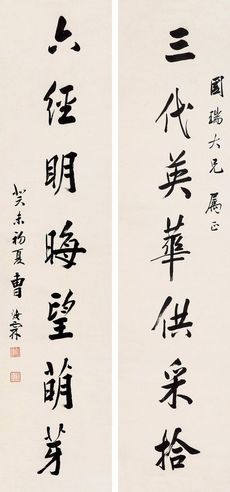 三代英華供采拾
國瑞大兄屬正
六經明晦望萌芽
癸未初夏曹汝霖